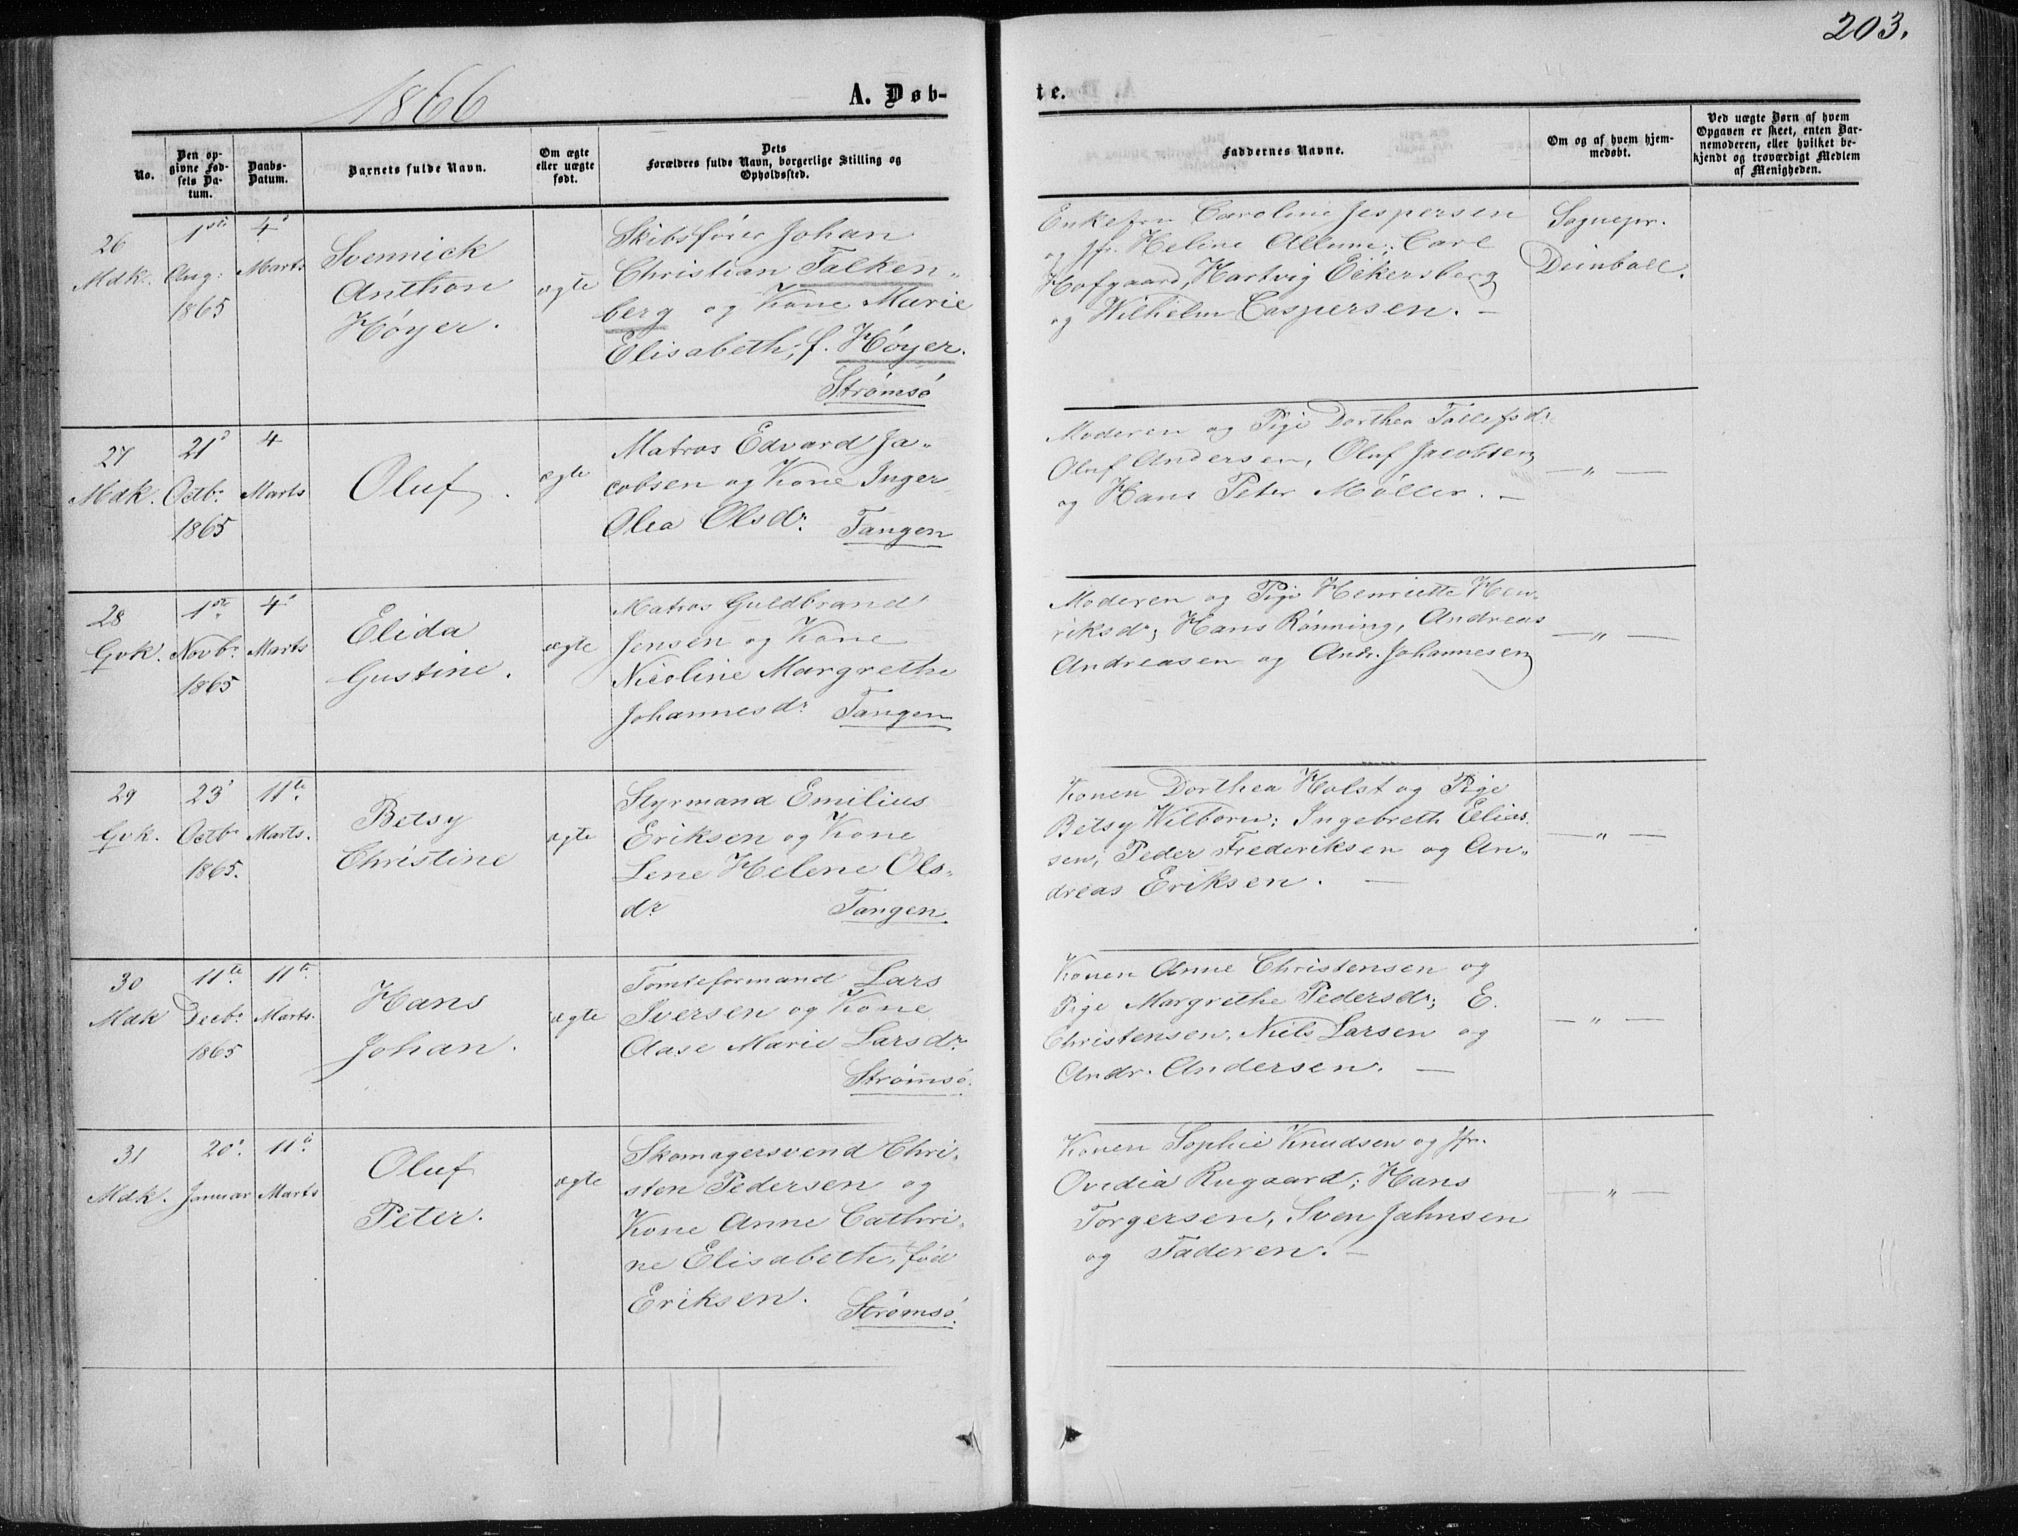 203.
1866
A. Døb-
te.
No.
Den op-
givne Fød-
sels Da-
tum.
Daabs-
Datum.
Barnets fulde Navn.
Om ægte
eller uægte
født.
Dets
Forældres fulde Navn, borgerlige Stilling og
Opholdssted.
Faddernes Navne.
Om og af hvem hjem-
medøbt.
Ved uægte Børn af hvem
Opgaven er skeet, enten Bar-
nemoderen, eller hvilket be-
kjendt og troværdigt Medlem
af Menigheden.
26
Mdk.
1ste
Aug.
1865
4d
Marts
Svennick
Anthon
Høyer.
ægte
Skibsfører Johan
Christian Falken-
berg og Kone Marie
Elisabeth, f. Høyer.
Strømsø
Enkefru Caroline Jespersen
og Jfr. Heline Allum; Carl
Hofgaard, Hartvig Eckersberg
og Wilhelm Caspersen. —
Sognepr.
Deinboll.
27
Mdk.
21d
Octbr.
1865
4
Marts
Oluf.
ægte
Matros Edvard Ja-
cobsen og Kone Inger
Olea Olsdr.
Tangen
Moderen og Pige Dorthea Tollefsdr.
Oluf Andersen, Oluf Jacobsen
og Hans Peter Møller. —
— " —
28
Gvk.
1ste
Novbr.
1865
4d
Marts
Elida
Gustine.
ægte
Matros Guldbrand
Jensen og Kone
Nicoline Margrethe
Johannesdr.
Tangen
Moderen og Pige Henriette Hen-
riksdr; Hans Rønning, Andreas
Andreasen og Andr. Johannesen
— " —
29
Gvk.
23d
Octbr
1865.
11te
Marts.
Betsy
Christine
ægte
Styrmand Emilius
Eriksen og Kone
Lene Helene Ols-
dr
Tangen
Konen Dorthea Holst og Pige
Betsy Wilborn; Ingebreth Elias-
sen, Peder Frederiksen og An-
dreas Eriksen. —
— " —
30
Mdk
11te
Decbr.
1865
11te
Marts.
Hans
Johan.
ægte
Tomteformand Lars
Iversen og Kone
Aase Marie Larsdr.
Strømsø.
Konen Anne Christensen og
Pige Margrethe Pedersdr; E.
Christensen, Niels Larsen og
Andr. Andersen. —
— " —
31
Mdk.
20d
Januar
11te
Marts
Oluf
Peter.
ægte
Skomagersvend Chri-
sten Pedersen og
Kone Anne Cathri-
ne Elisabeth, fød
Eriksen.
Strømsø.
Konen Sophie Knudsen og Jfr.
Ovedia Rugaard; Hans
Torgersen, Sven Jahnsen
og Faderen. —
— " —